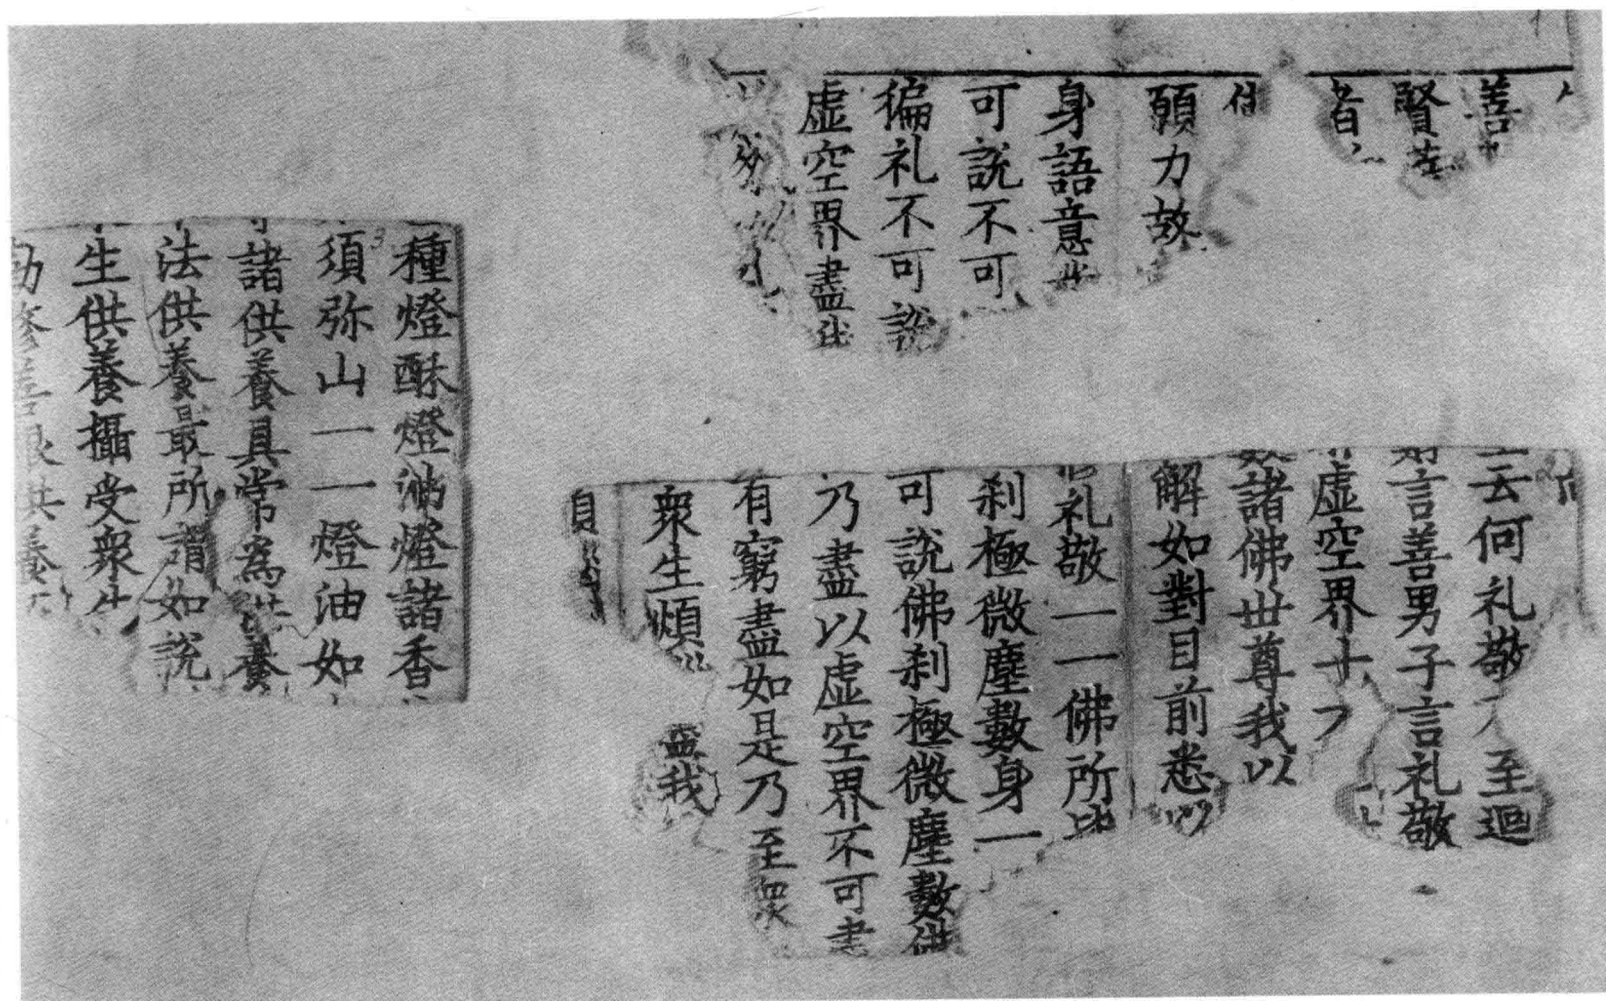 善
賢
者
願力故
身語意
可說不可
徧礼不可說
虛空界盡
云何礼敬乃至迴
言善男子言礼敬
虛空界十方
諸佛世尊我以
解如對目前悉以
礼敬一一佛所
刹極微塵數身一
可說佛刹極微塵數佛
乃盡以虛空界不可盡
有窮盡如是乃至衆
衆生煩
盡我
種燈酥燈油燈諸香
3
須弥山一一燈油如
諸供養具常爲供養
法供養最所謂如說
生供養攝受衆生
勤修善根供養